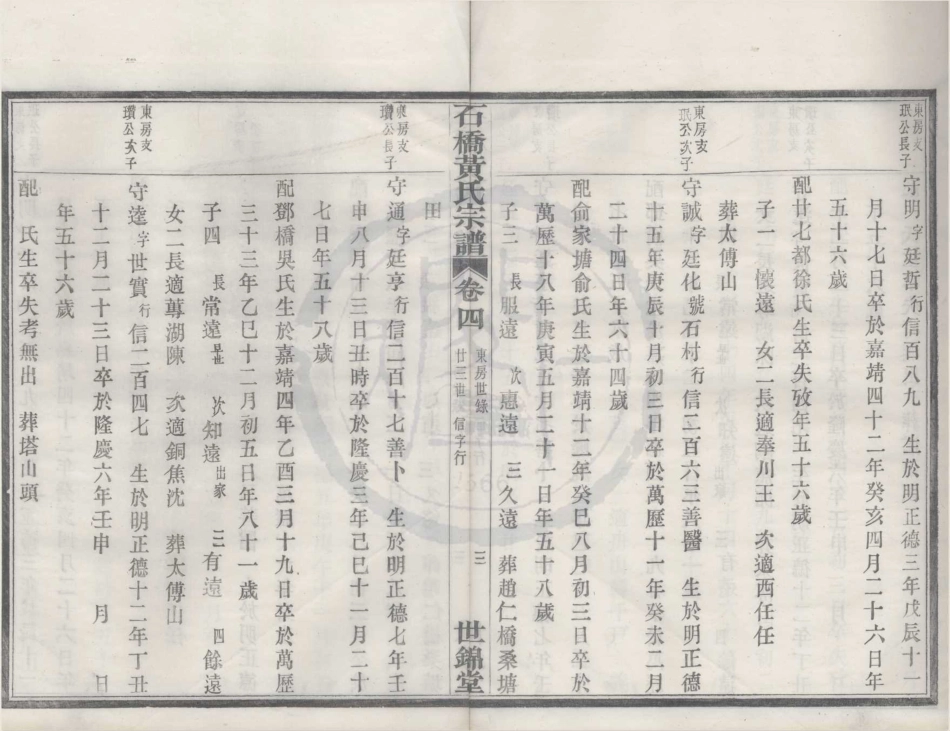 東房支
珉公長子
守明字廷哲行信百八九 生於明正德三年戊辰十一
月十七日卒於嘉靖四十二年癸亥四月二十六日年
五十六歲
配廿七都徐氏生卒失攷年五十六歲
子一懷遠 女二長適奉川王 次適西任任
葬太傅山
東房支
珉公次子
守誠字廷化號石村行信二百六三善醫 生於明正德
十五年庚辰十月初三日卒於萬歷十九年癸未二月
二十四日年六十四歲
配俞家塘俞氏生於嘉靖十二年癸巳八月初三日卒於
萬歷十八年庚寅五月二十一日年五十八歲
子三 長服遠 次應遠 三久遠 葬趙仁橋桑塘
田
石橋黃氏宗譜 卷四 東房世錄 廿三世 信字行 三 世錦堂
東房支
瓚公長子
守通字廷亨行信二百十七善卜 生於明正德七年壬
申八月十三日丑時卒於隆慶三年己巳十一月二十
七日年五十八歲
配鄧橋吳氏生於嘉靖四年乙酉三月十九日卒於萬歷
三十三年乙巳十二月初五日年八十一歲
子四 長常遠早世 次知遠出家 三有遠 四餘遠
女二長適蓴湖陳 次適銅焦沈 葬太傅山
東房支
瓚公次子
守逵字世賓行信二百四七 生於明正德十二年丁丑
十二月二十三日卒於隆慶六年壬申 月 日
年五十六歲
配 氏生卒失考無出 葬塔山頭